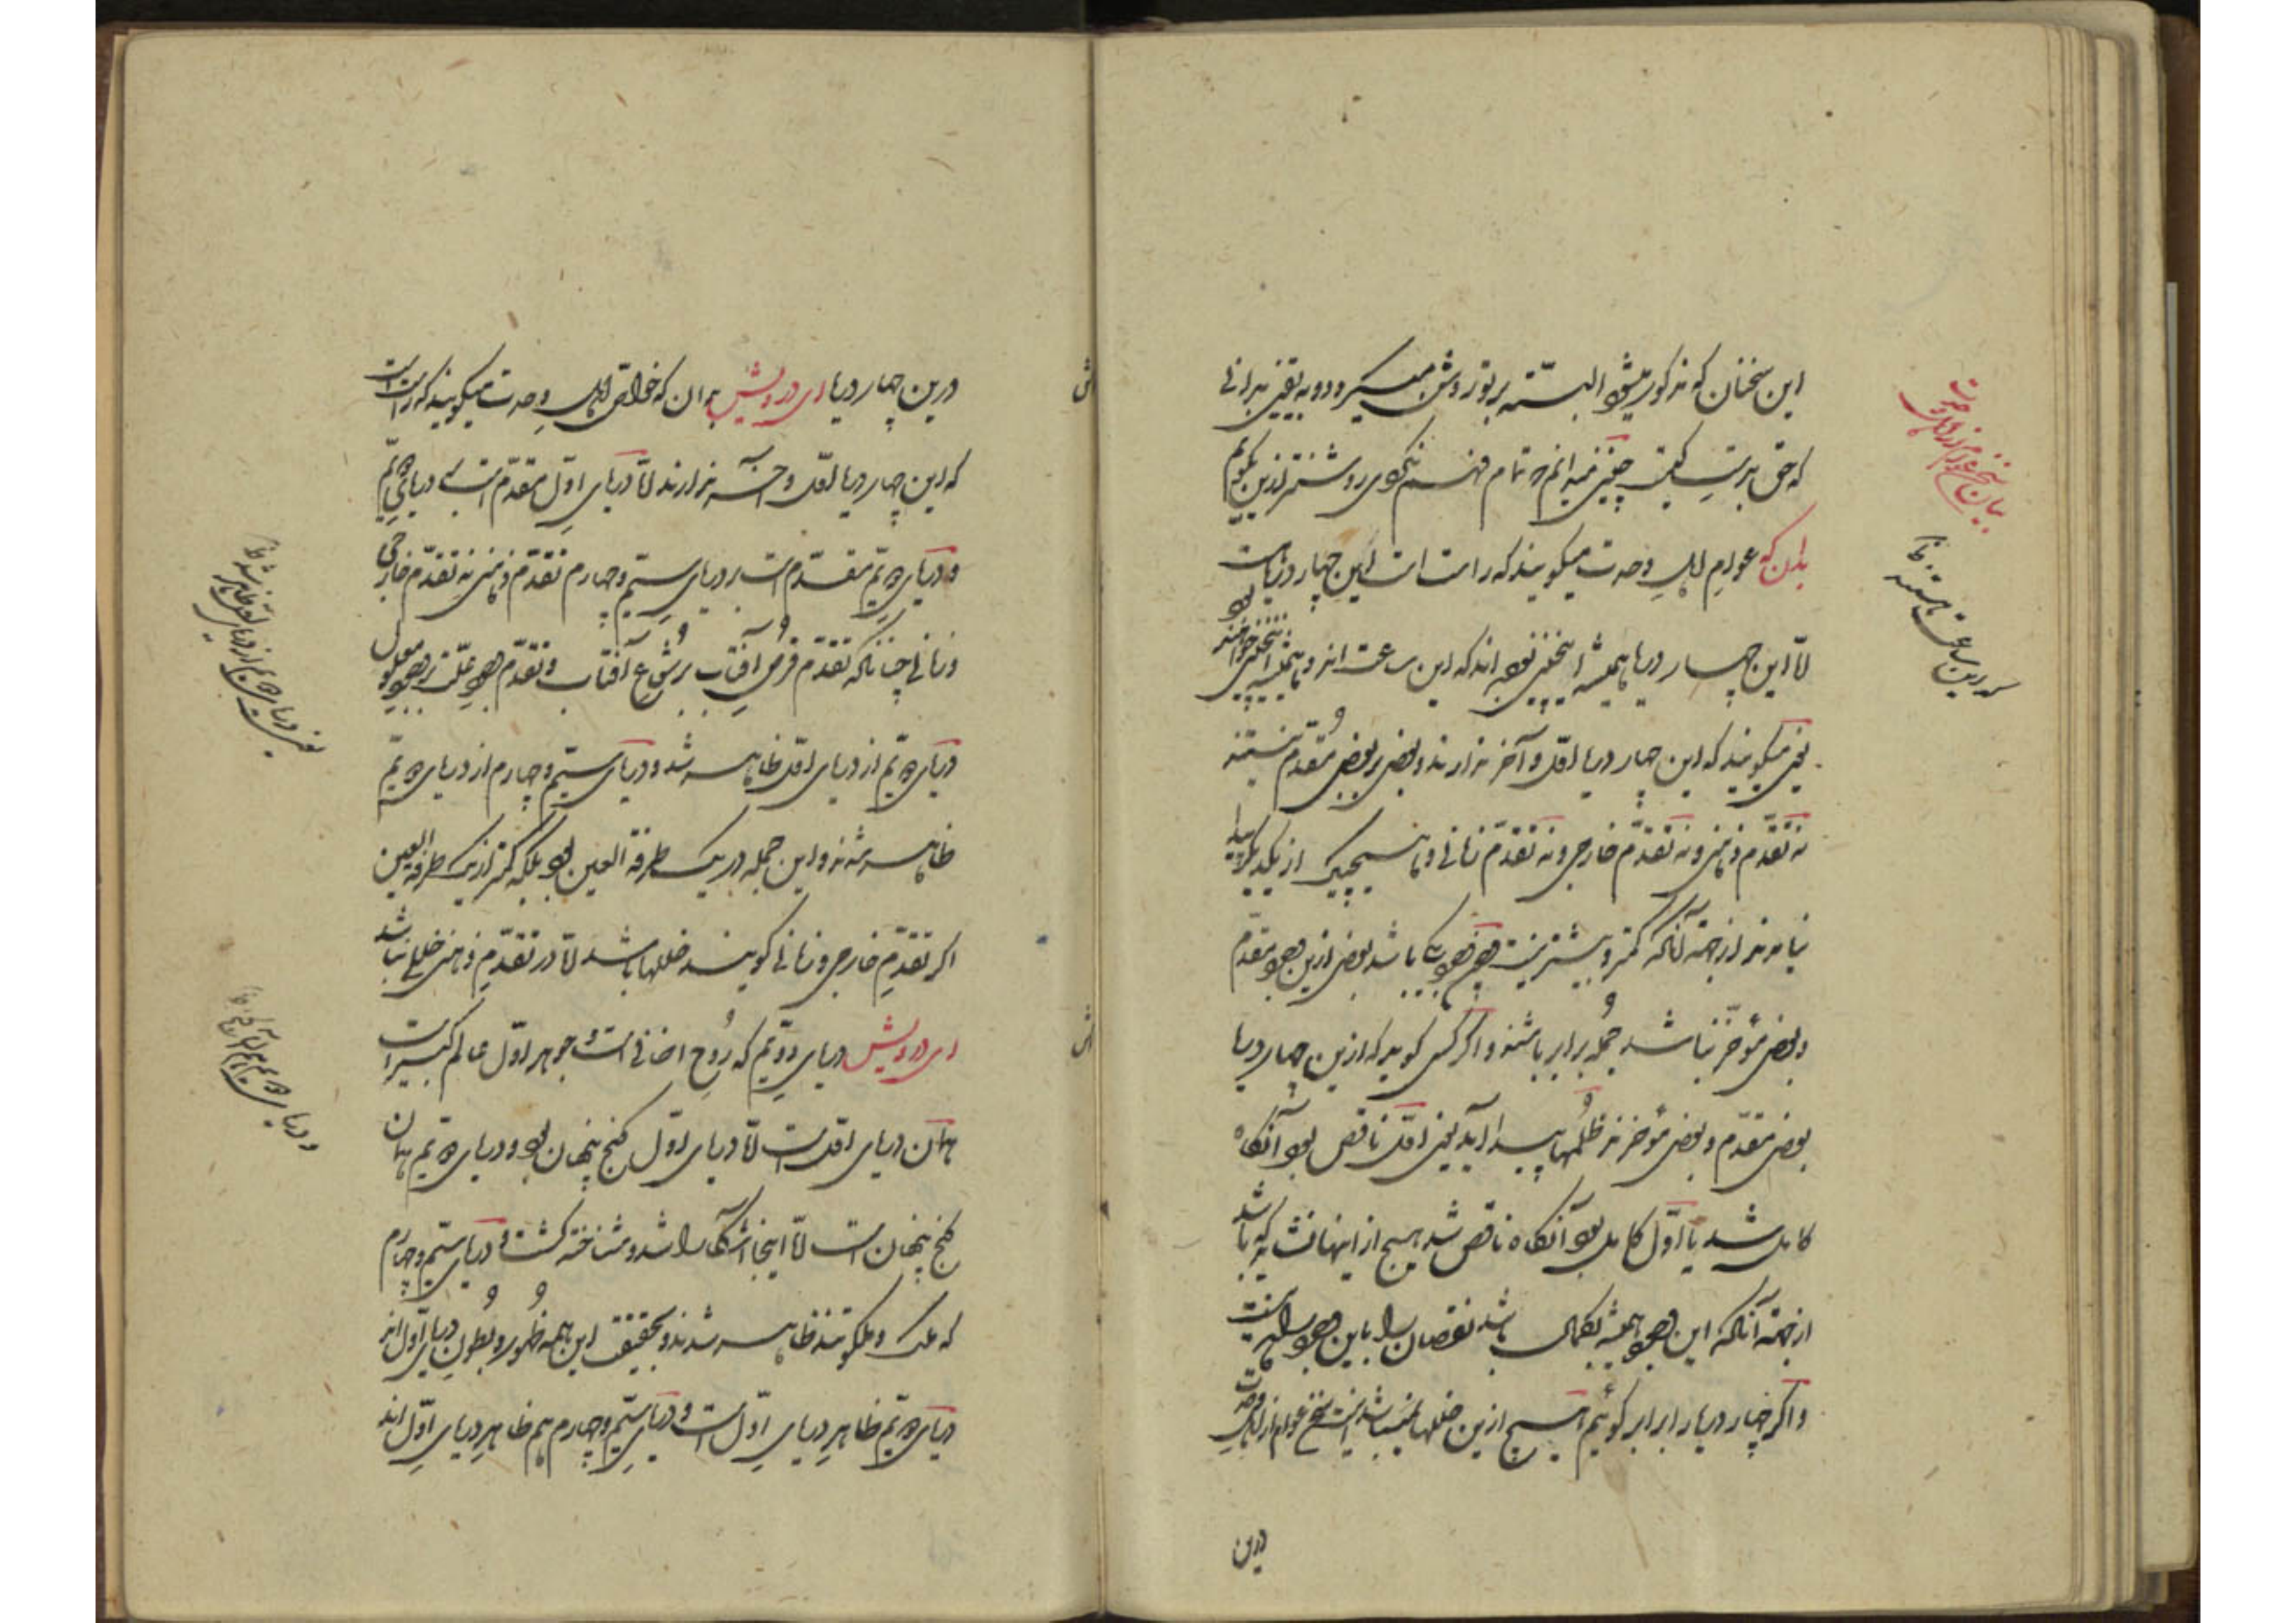 این سخنان که مذکور میشود البته بر تو روشن میگردد و به یقین بدانی
که حق بدست کیست چنین میدانم که تمام فهم نکردی روشنتر ازین بگویم
بدان که عوام اهل وحدت میگویند که راست است این چهار دریاست
امّا این چهار دریا همیشه اینچنین بوده اند که این ساعت اند و همیشه اینچنین خواهند بود
یعنی میگویند که این چهار دریا اوّل و آخر ندارند و بعضی بر بعضی مُقدّم نیستند
نه تقدّم ذهنی و نه تقدّم خارجی و نه تقدّم زمانی و هیچیک از یکدیگر پیدا
نیامدند از جهة آنکه کمتر و بیشتر نیست چون وجود یکی باشد بعضی ازین وجود مقدّم
و بعضی مؤخّر نباشد جُمله برابر باشند و اگر کسی گوید که ازین چهار دریا
بعضی مقدّم و بعضی مؤخرند خللها پیدا آید یعنی اوّل ناقص بود آنگاه
کامل شد یا اوّل کامل بود آنگاه ناقص شد هیچ از اینها نشاید که باشد
از جهة آنکه این وجود همیشه بکمال باشد نقصان را باین وجود راه نیست
و اگر چهار دریا را برابر گوئیم هیچ ازین خللها نباشد اینست سخن عوام از اهل وحدت
درین
بیان سخن عوام از اهل وحدت
که درین ساعت هستند
درین چهار دریا ای درویش بدان که خواصّ اهل وحدت میگویند که راست است
که این چهار دریا اوّل و آخر ندارند امّا دریای اوّل مقدّم است بر دریای دوّیم
و دریای دوّیم مقدّم است بر دریای سیّم و چهارم تقدّم ذهنی نه تقدّم خارجی
و زمانی چنانکه تقدّم قرص آفتاب بر شُعاع آفتاب و تقدّم وجود علّت بر وجود معلول
دریای دوّیم از دریای اوّل ظاهر شد و دریای سیّم و چهارم از دریای دوّیم
ظاهر شدند و این جمله در یک طرفة العین بود بلکه کمتر از یک طرفة العین
اگر تقدّم خارجی و زمانی گویند خللها باشد امّا در تقدّم ذهنی خللی نباشد
ای درویش دریای دوّیم که رُوح اضافی است و جوهر اوّل عالم کبیر است
همان دریای اوّل است امّا دریای اوّل گنج پنهان بود و دریای دوّیم همان
گنج پنهان است امّا اینجا آشکارا شد و شناخته گشت و دریای سیّم و چهارم
که ملک و ملکوتند ظاهر شدند و بحقیقت این همه ظُهور و بُطون دریای اوّل اند
دریای دوّیم ظاهرِ دریای اوّل است و دریای سیّم و چهارم هم ظاهرِ دریای اوّل اند
یعنی دریای دوّیم از دریای اوّل ظاهر شد
و دریای